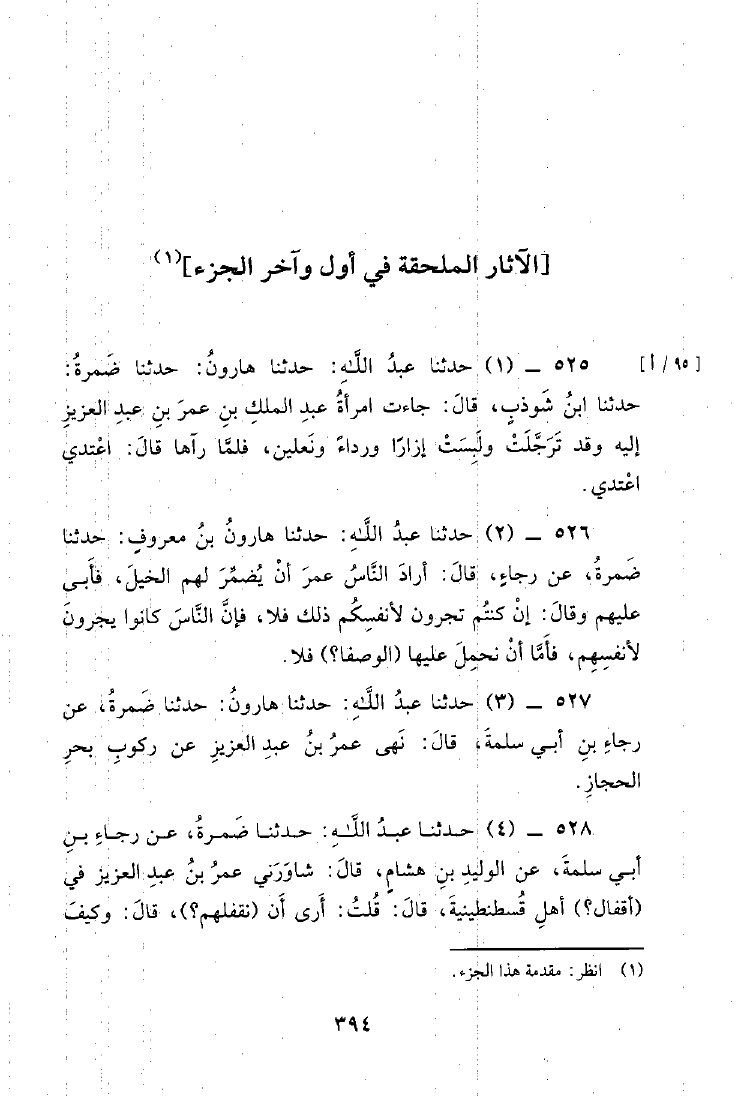 [الآثار الملحقة في أول وآخر الجزء](١)
[٩٥/ أ] ٥٢٥ ـ (١) حدثنا عبدُ اللَّهِ: حدثنا هارونُ: حدثنا ضَمرةُ:
حدثنا ابنُ شَوذبٍ، قالَ: جاءت امرأةُ عبدِ الملكِ بنِ عمرَ بنِ عبدِ العزيزِ
إليه وقد تَرَجَّلَتْ ولَبِسَتْ إزارًا ورداءً ونَعلين، فلمَّا رآها قالَ: اعْتدي
اعْتدي.
٥٢٦ ـ (٢) حدثنا عبدُ اللَّهِ: حدثنا هارونُ بنُ معروفٍ: حدثنا
ضَمرةُ، عن رجاءٍ، قالَ: أرادَ النَّاسُ عمرَ أنْ يُضمِّرَ لهم الخيلَ، فأَبى
عليهم وقالَ: إنْ كنتُم تجرون لأنفسِكُم ذلك فلا، فإنَّ النَّاسَ كانوا يجرونَ
لأنفسِهِم، فأمَّا أنْ نحمِلَ عليها (الوصفا؟) فلا.
٥٢٧ ـ (٣) حدثنا عبدُ اللَّهِ: حدثنا هارونُ: حدثنا ضَمرةُ، عن
رجاءِ بنِ أبي سلمةَ، قالَ: نَهى عمرُ بنُ عبدِ العزيزِ عن ركوبِ بحرِ
الحجازِ.
٥٢٨ ـ (٤) حدثنا عبدُ اللَّهِ: حدثنا ضَمرةُ، عن رجاءِ بنِ
أبي سلمةَ، عن الوليدِ بنِ هشامٍ، قالَ: شاوَرَني عمرُ بنُ عبدِ العزيز في
(أقفال؟) أهلِ قُسطنطينيةَ، قالَ: قُلتُ: أرى أن (نقفلهم؟)، قالَ: وكيفَ
(١) انظر: مقدمة هذا الجزء.
٣٩٤